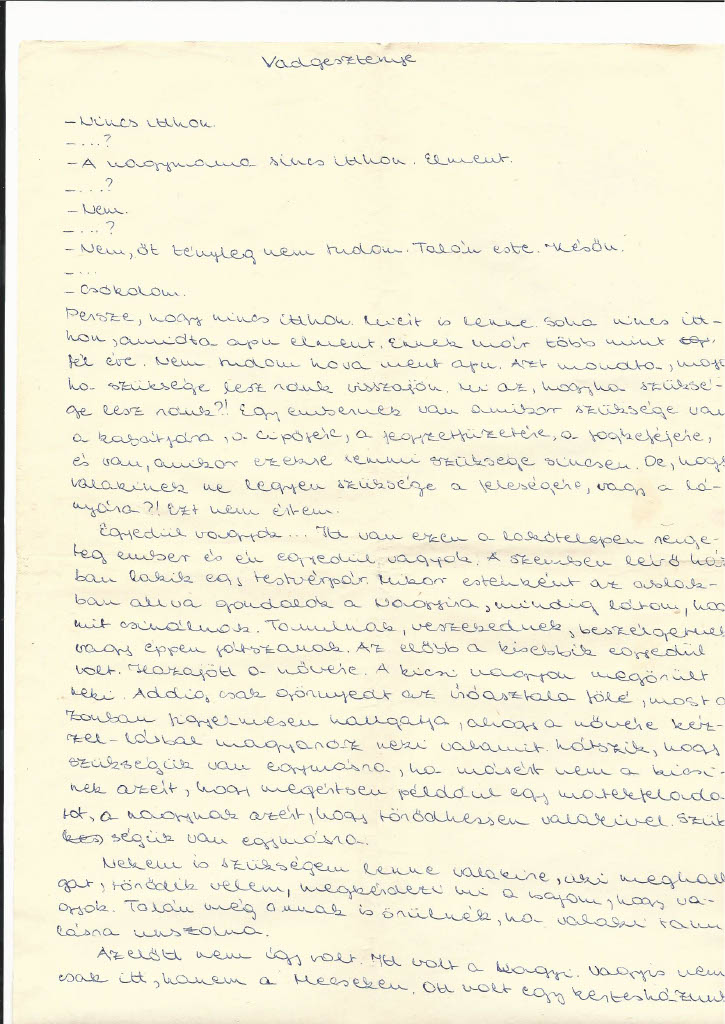 Vadgesztenye
- Nincs itthon.
- ...?
- A nagymama sincs itthon. Elment.
- ...?
- Nem.
- ...?
- Nem, őt tényleg nem tudom. Talán este. Későn.
- ...
- Csókolom.
Persze, hogy nincs itthon. Miért is lenne. Soha nincs itt-
hon, amióta apu elment. Ennek már több mint
fél éve. Nem tudom hova ment apu. Azt mondta, majd
ha szüksége lesz ránk visszajön. Mi az, hogyha szüksé-
ge lesz ránk?! Egy embernek van amikor szüksége van
a kabátjára, a cipőjére, a jegyzetfüzetére, a fogkeféjére,
és van, amikor ezekre semmi szüksége sincsen. De, hogy
valakinek ne legyen szüksége a feleségére, vagy a lá-
nyára?! Ezt nem értem.
Egyedül vagyok... Itt van ezen a lakótelepen renge-
teg ember és én egyedül vagyok. A szemben lévő ház
ban lakik egy testvérpár. Mikor esténként az ablak-
ban állva gondolok a Nagyira, mindig látom, hogy
mit csinálnak. Tanulnak, veszekednek, beszélgetnek
vagy éppen játszanak. Az előbb a kisebbik egyedül
volt. Hazajött a nővére. A kicsi nagyon megörült
neki. Addig csak görnyedt az íróasztala fölé, most a
zonban figyelmesen hallgatja, ahogy a nővére kéz-
zel-lábbal magyaráz neki valamit. Látszik, hogy
szükségük van egymásra, ha másért nem a kicsi-
nek azért, hogy megértsen például egy matekfelada
tot, a nagynak azért, hogy törődhessen valakivel. Szük
ségük van egymásra.
Nekem is szükségem lenne valakire, aki meghall
gat, törődik velem, megkérdezi mi a bajom, hogy va-
gyok. Talán még annak is örülnék, ha valaki tanu
lásra unszolna.
Azelőtt nem így volt. Itt volt a Nagyi. Vagyis nem
csak itt, hanem a Mecseken. Ott volt egy kertesházunk